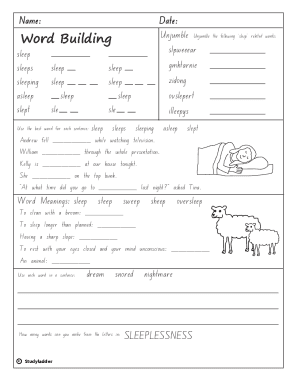 Name:
Date:
Word Building
sleep ________ ________
sleeps sleep __ sleep __
sleeping sleep __ __ __ sleep __ __ __
asleep __ sleep __ sleep
slept sle__ __ sle__ __
Unjumble Unjumble the following sleep related words.
slpweear ________
gmbtormie ________
zidong ________
ovslepert ________
illeepys ________
Use the best word for each sentence. sleep sleeps sleeping asleep slept
Andrew fell ________ while watching television.
William ________ through the whole presentation.
Kelly is ________ at our house tonight.
She ________ on the top bunk.
"At what time did you go to ________ last night?" asked Tina.
Word Meanings: sleep steep sweep sheep oversleep
To clean with a broom: ________
To sleep longer than planned: ________
Having a sharp slope: ________
To rest with your eyes closed and your mind unconscious: ________
An animal: ________
Use each word in a sentence: dream snored nightmare
How many words can you make from the letters in: SLEEPLESSNESS
© Studyladder